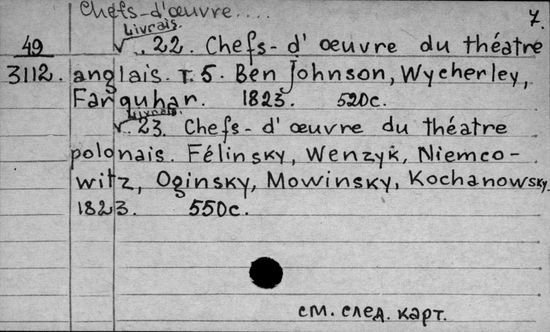 Chefs-d'œuvre.... 7.
Livrais.
49 √..22. Chefs-d'oeuvre du théatre
3112. anglais. T.5. Ben Johnson, Wycherley,
Farquhar. 1823. 520c.
Livrais.
√.23. Chefs-d'œuvre du théatre
polonais. Félinsky, Wenzyk, Niemco-
witz, Oginsky, Mowinsky, Kochanowsky.
1823. 550c.
см. след. карт.